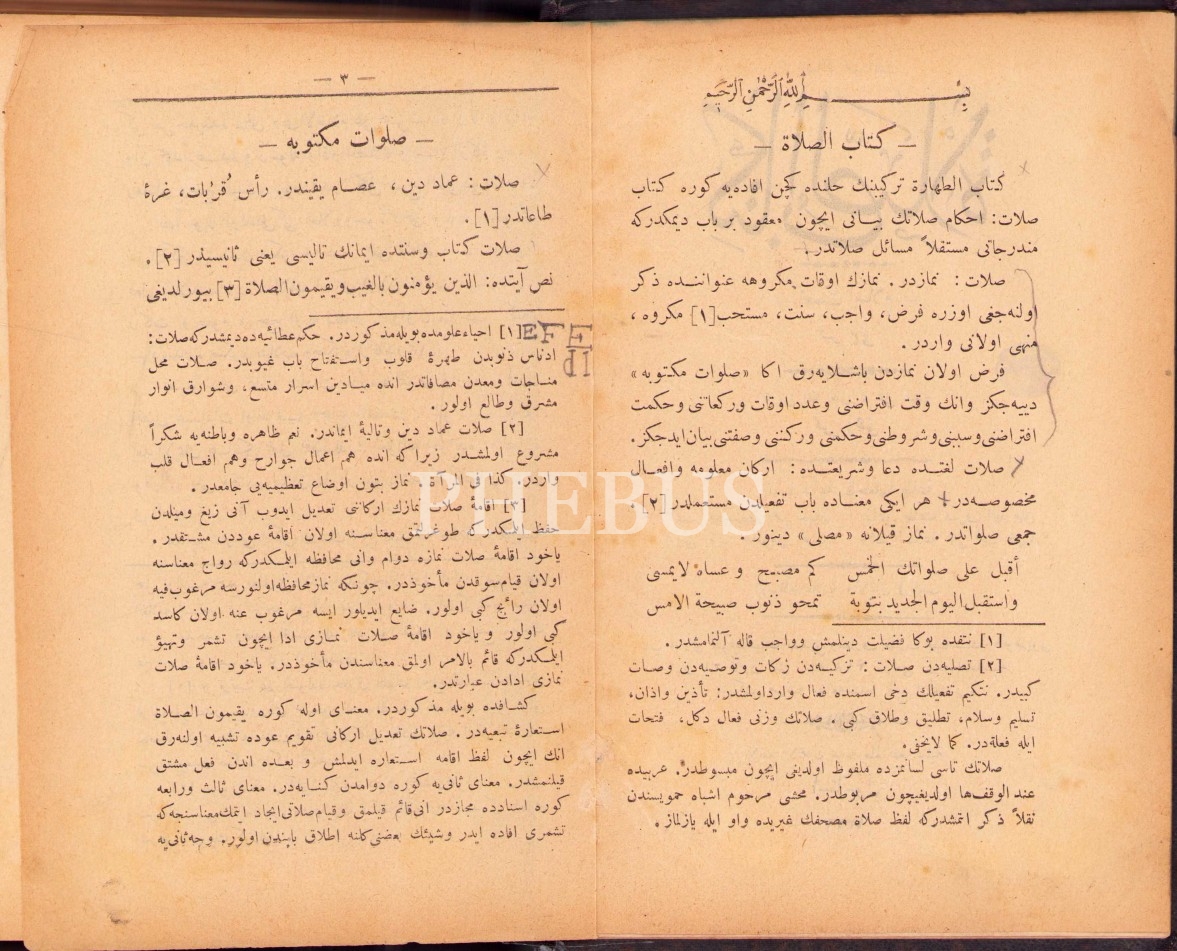 بسم الله الرحمن الرحيم
— كتاب الصلاة —
كتاب الطهارة تركيبنك حلنده كچن افاده‌يه كوره كتاب
صلات: احكام صلاتك بيـانى ايچون معقود بر باب ديمكدركه
مندرجاتى مستقلاً مسائل صلاتدر.
صلات : نمازدر . نمازك اوقات مكروهه عنواننـده ذكر
اولنه‌جغى اوزره فرض، واجب، سنت، مستحب[١] مكروه،
منهى اولانى واردر .
فرض اولان نمازدن باشـلايه‌رق اكا «صلوات مكتوبه»
دييه‌جكز وانك وقت افتراضنى وعدد اوقات وركعاتنى وحكمت
افتراضنى وسببنى وشروطنى وحكمنى وركننى وصفتنى بيان ايدجكز.
صلات لغتـده دعا وشريعتـده : اركان معلومه وافعـال
مخصوصـه‌در هر ايكى معنـاده باب تفعيلدن مستعملدر [٢]
جمعى صلواتدر . نماز قيلانه «مصلى» دينور.
أقبل على صلواتك الخمس كم مصبح وعساه لايمسى
واستقبل اليوم الجديد بتوبة تمحو ذنوب صبيحة الامس
[١] نتفده بوكا فضيلت دينلمش وواجب قاله آلنمامشدر .
[٢] تصليه‌دن صـلات : تزكيـه‌دن زكات وتوصيه‌دن وصات
كبيدر. نتكيم تفعيلك دخى اسمنده فعال وارد اولمشدر: تأذين واذان،
تسليم وسلام، تطليق وطلاق كبى . صلاتك وزنى فعال دكل، فتحات
ايله فعلة‌در. كما لايخفى.
صلاتك تاسى لسانمزده ملفوظ اولديغى ايچون مبسوطدر. عربيده
عند الوقف‌ها اولديغيچون مربوطدر. محشى مرحوم اشباه حمويسندن
نقلاً ذكر اتمشدركه لفظ صلاة مصحفك غيريده واو ايله يازلماز .
— ٣ —
— صلوات مكتوبه —
صلات : عماد دين، عصـام يقيندر. رأس قربات، غرۀ
طاعاتدر [١] .
صلات كتاب وسنتده ايمانك تاليسى يعنى ثانيسيدر [٢] .
نص آيتده : الذين يؤمنون بالغيب ويقيمون الصلاة [٣] بيورلديغى
[١] احياء علومده بويله مذكوردر. حكم عطائيه‌ده ديمشدركه صلات:
ادناس ذنوبدن طهرۀ قلوب واسـتفتاح باب غيوبدر. صـلات محل
منـاجات ومعدن مصافاتدر انده ميـادين اسرار متسع، وشوارق انوار
مشرق وطالع اولور .
[٢] صلات عماد دين وتاليۀ ايماندر. نعم ظاهره وباطنه‌يه شكراً
مشروع اولمشدر زيرا كه انده هم اعمال جوارح وهم افعـال قلب
واردر. كذا فى المرآة. نماز بتون اوضاع تعظيميه‌يى جامعدر.
[٣] اقامۀ صلات نمازك اركاننى تعديل ايدوب آنى زيغ وميلدن
حفظ ايلمكدركه طوغرلتمق معناسـنه اولان اقامۀ عوددن مشـتقدر.
ياخود اقامۀ صلات نمازه دوام وانى محافظه ايلمكدركه رواج معناسنه
اولان قيام سوقدن مأخوذدر. چونكه نماز محافظه اولنورسه مرغوب فيه
اولان رائج كبى اولور. ضايع ايديلور ايسه مرغوب عنه اولان كاسد
كبى اولور وياخود اقامۀ صـلات نمـازى ادا ايچون تشمر وتهيؤ
ايلمكدركه قائم بالامر اولمق معناسندن مأخوذدر. ياخود اقامۀ صلات
نمازى ادادن عبارتدر.
كشـافده بويله مذكوردر. معنـاى اوله كوره يقيمون الصـلاة
اسـتعارۀ تبعيه‌در. صلاتك تعديل اركانى تقويم عوده تشبيه اولنه‌رق
انك ايچون لفظ اقامه اسـتعاره ايدلمش وبعـده اندن فعل مشتق
قيلنمشدر. معناى ثانى‌يه كوره دوامدن كنـايه‌در. معناى ثالث ورابعه
كوره اسنادده مجازدر انى قائم قيلمق وقيام صلاتى ايجاد ايتمك معناسنجه كه
تشمرى افاده ايدر وشيئك بعضنى كلنه اطلاق بابندن اولور. وجه ثانى‌يه
EFE
PHEBUS